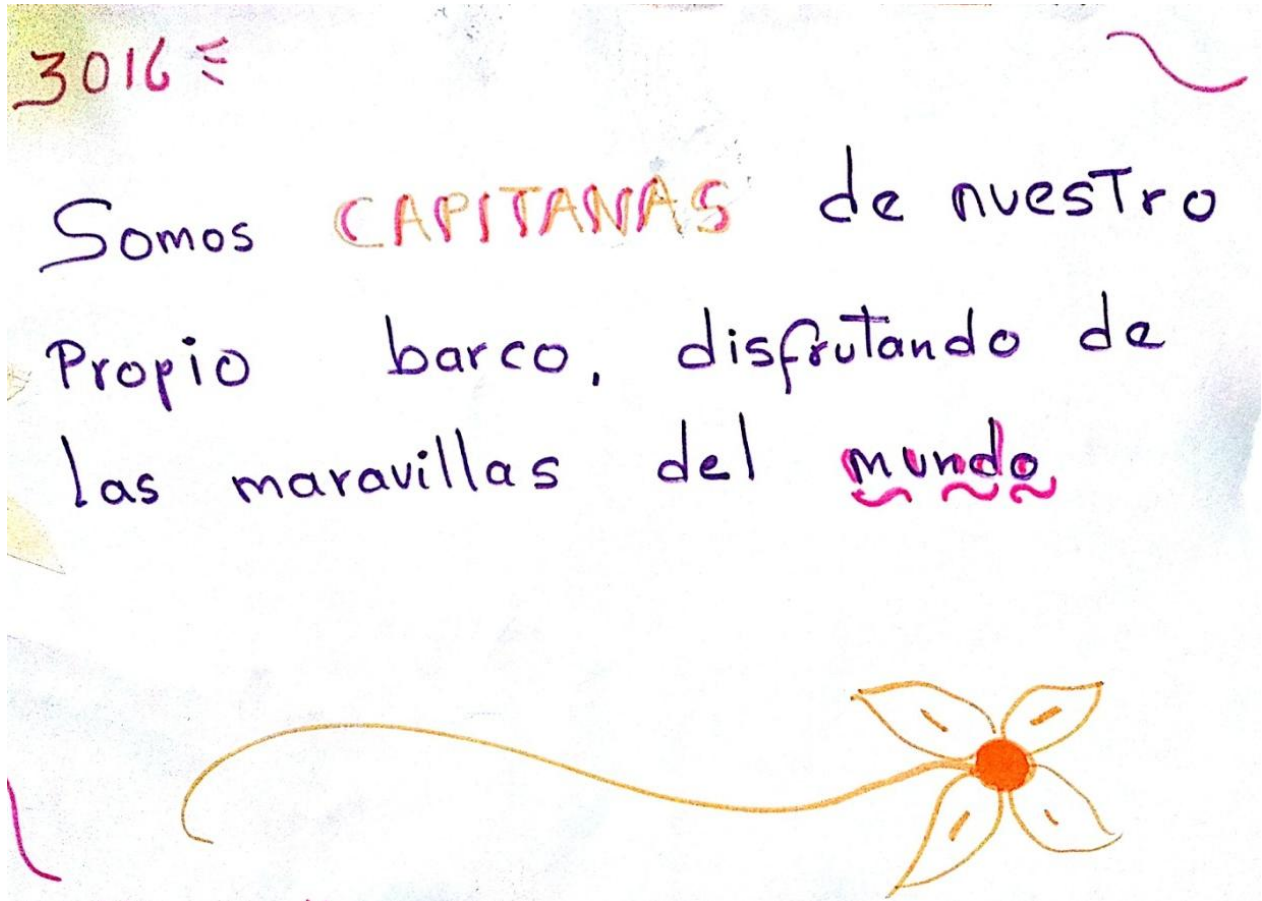 3016
Somos CAPITANAS de nuesTro
Propio barco, disfruTando de
las maravillas del mundo